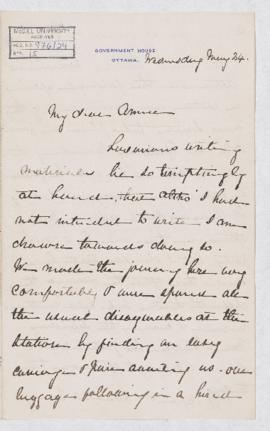 McGILL UNIVERSITY
ARCHIVES
ACC. NO. 976/24
REF. 5
GOVERNMENT HOUSE
OTTAWA.
Wednesday May 24.
My dear Annie
Luxurious writing
materials lie so temptingly
at hand, that altho' I had
not intended to write I am
drawn towards doing so.
We made the journey here very
comfortably & were spared all
the usual disagreeables at the
station by finding an easy
carriage & pair awaiting us - our
luggage following in a hired